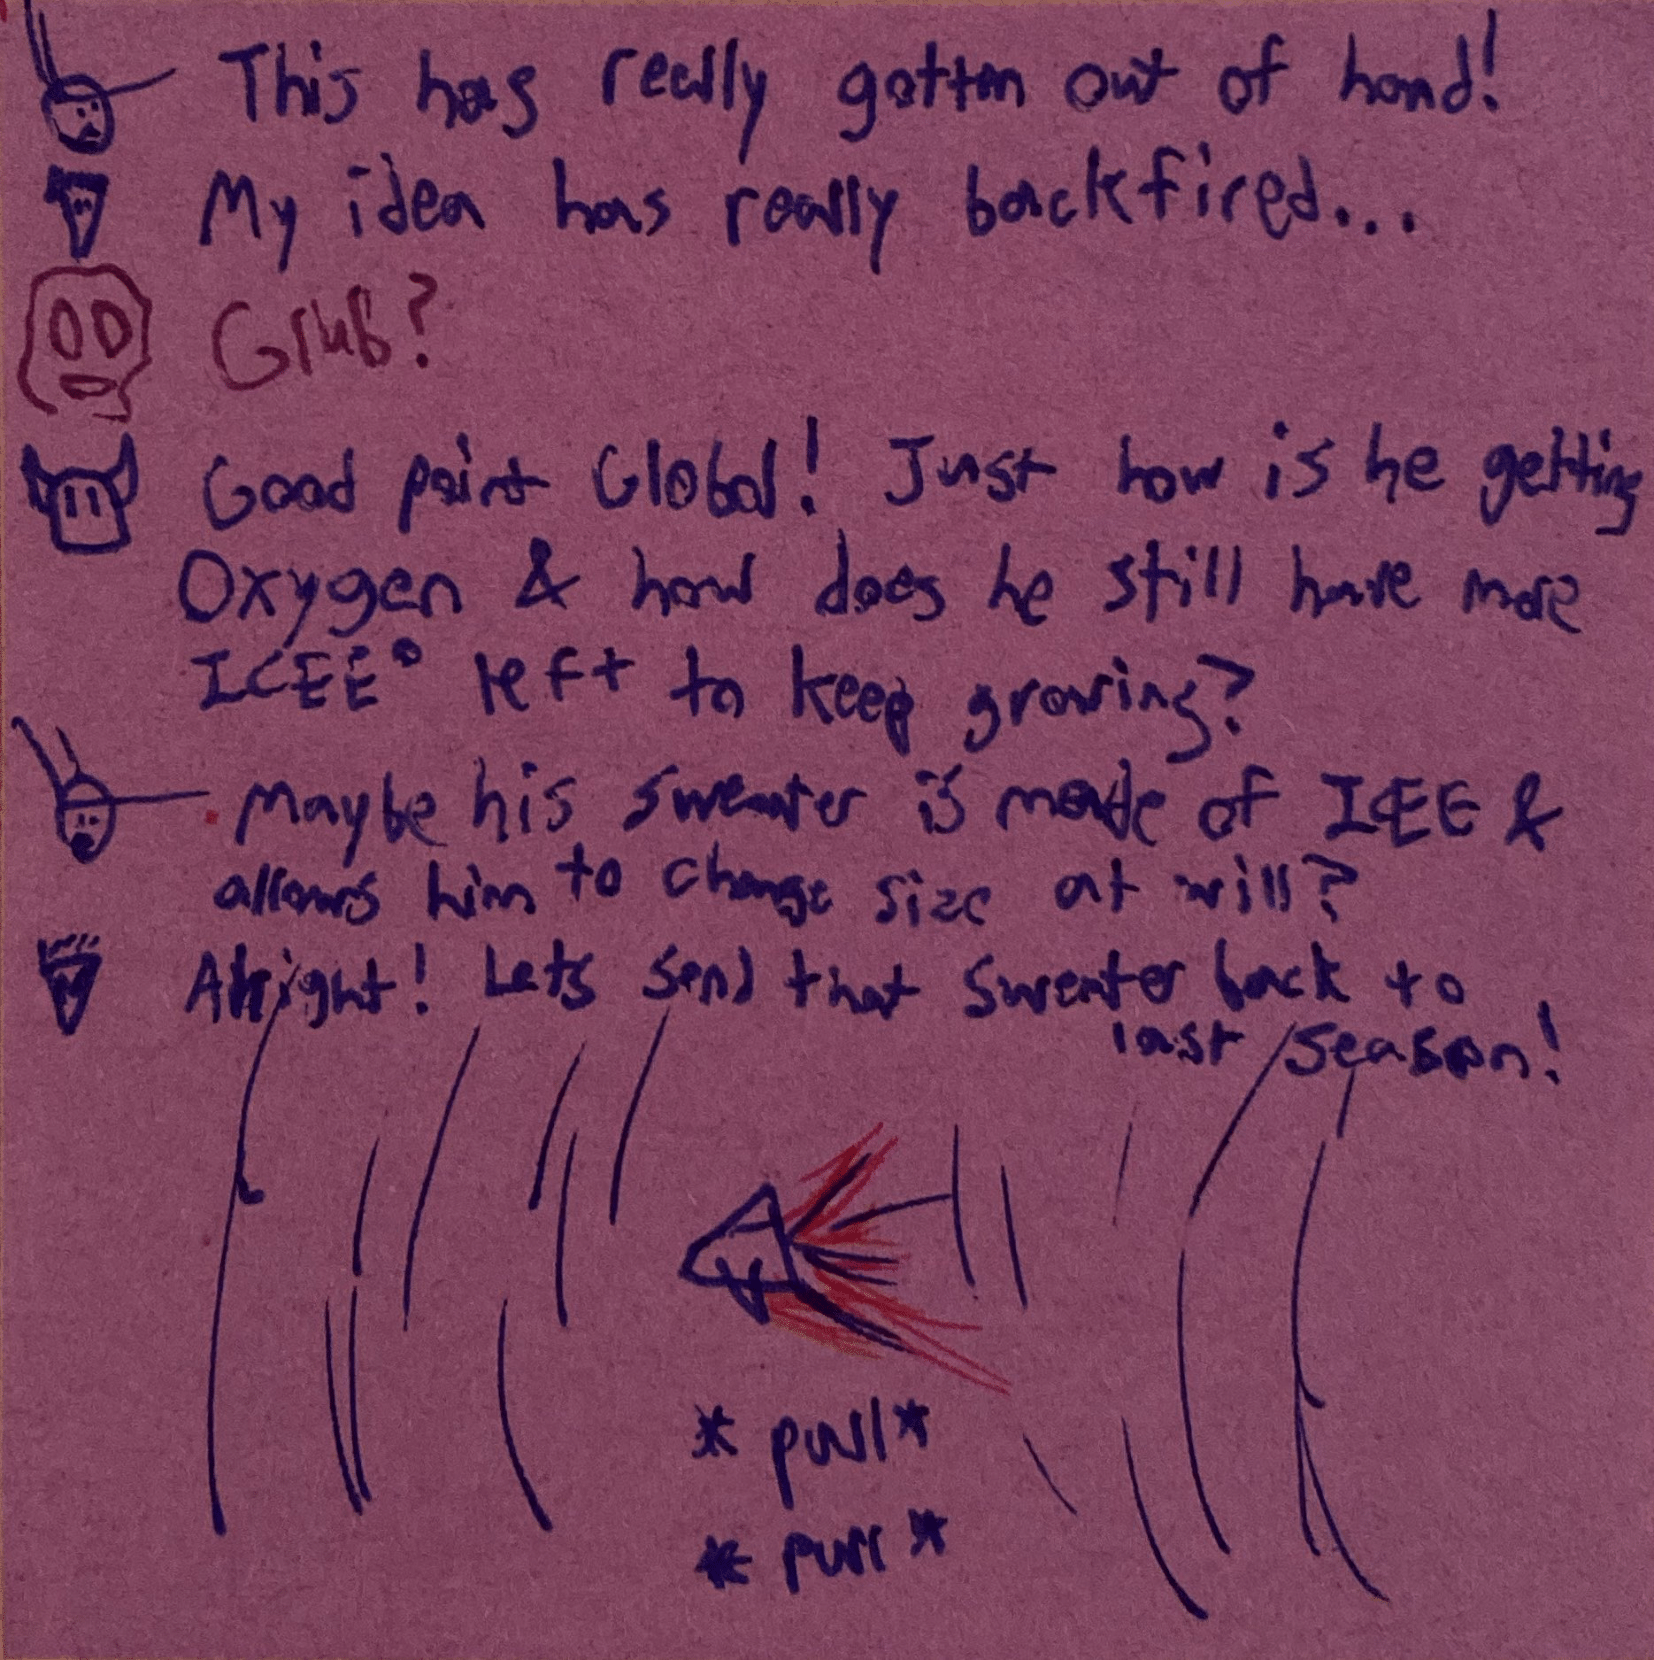 This has really gotten out of hand!
My idea has really backfired...
Glub?
Good point Global! Just how is he getting
Oxygen & how does he still have more
ICEE® left to keep growing?
Maybe his sweater is made of ICEE &
allows him to change size at will?
Alright! Lets send that sweater back to
last season!
*pull*
*pull*